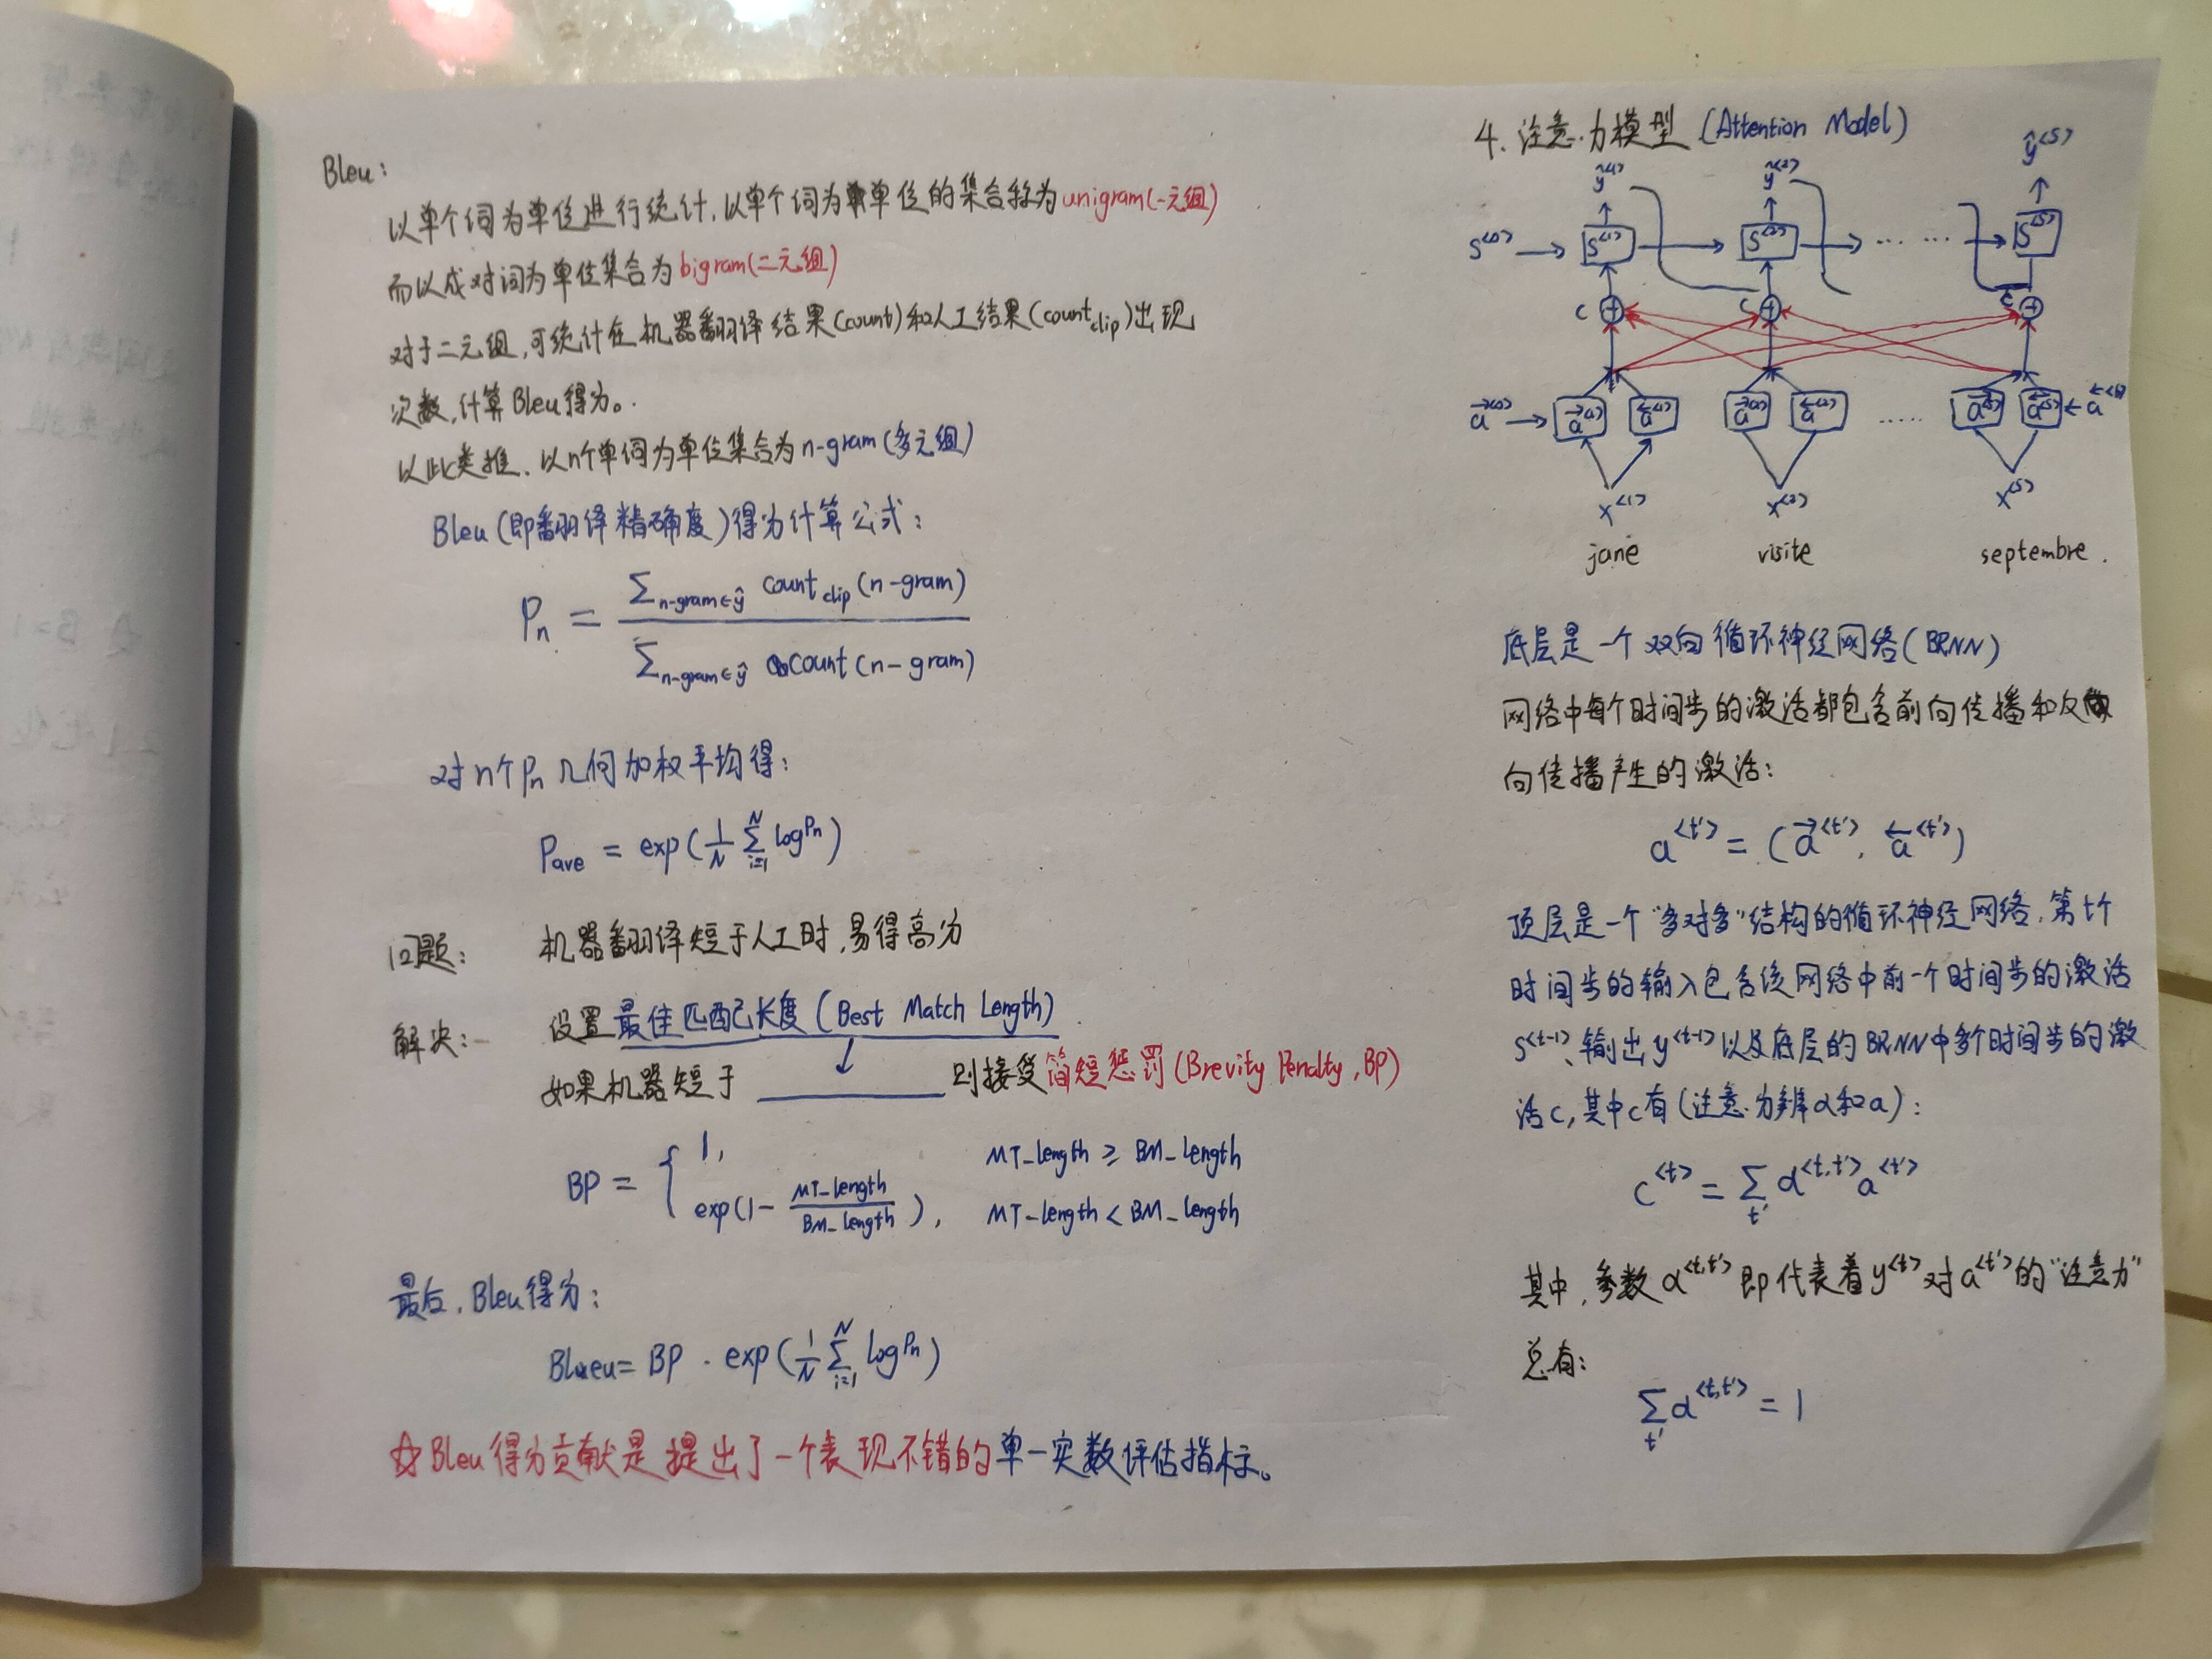 Bleu:
以单个词为单位进行统计,以单个词为单位的集合称为unigram(一元组)
而以成对词为单位集合为bigram(二元组)
对于二元组,可统计在机器翻译结果(count)和人工结果(count_clip)出现
次数,计算Bleu得分。
以此类推,以n个单词为单位集合为n-gram(多元组)
Bleu(即翻译精确度)得分计算公式:
Pn = Σ_{n-gram∈ŷ} count_clip(n-gram) / Σ_{n-gram∈ŷ} count(n-gram)
对n个Pn几何加权平均得:
Pave = exp(1/N Σ_{i=1}^{N} log^{Pn})
问题: 机器翻译短于人工时,易得高分
解决: 设置最佳匹配长度(Best Match Length)
如果机器短于 ______ 则接受简短惩罚(Brevity Penalty,BP)
BP = { 1, MT_length ≥ BM_length
exp(1 - MT_length / BM_length), MT_length < BM_length
最后,Bleu得分:
Bleu = BP · exp(1/N Σ_{i=1}^{N} log^{Pn})
☆Bleu得分贡献是提出了一个表现不错的单一实数评估指标。
4.注意力模型(Attention Model)
ŷ<1> ŷ<2> ŷ<5>
S<0> → S<1> → S<2> → ...... → S<5>
c c c
→a<0> → →a<1> ←a<1> →a<2> ←a<2> ..... →a<5> ←a<5> ← ←a
x<1> x<2> x<5>
jane visite septembre.
底层是一个双向循环神经网络(BRNN)
网络中每个时间步的激活都包含前向传播和反
向传播产生的激活:
a<t'> = (→a<t'>, ←a<t'>)
顶层是一个"多对多"结构的循环神经网络,第t个
时间步的输入包含该网络中前一个时间步的激活
s<t-1>、输出y<t-1>以及底层的BRNN中多个时间步的激
活c,其中c有(注意分辨α和a):
c<t> = Σ_{t'} α<t,t'> a<t'>
其中,参数α<t,t'>即代表着y<t>对a<t'>的"注意力"
总有:
Σ_{t'} α<t,t'> = 1